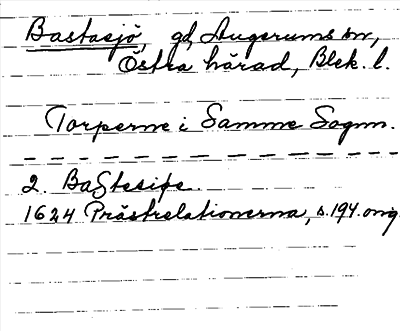 Bastasjö, gd, Augerums sn,
Östra härad, Blek. l.
Torperne i Samme Sognn.
2. Bastesiøe
1624 Prästrelationerna, s. 194. orig.